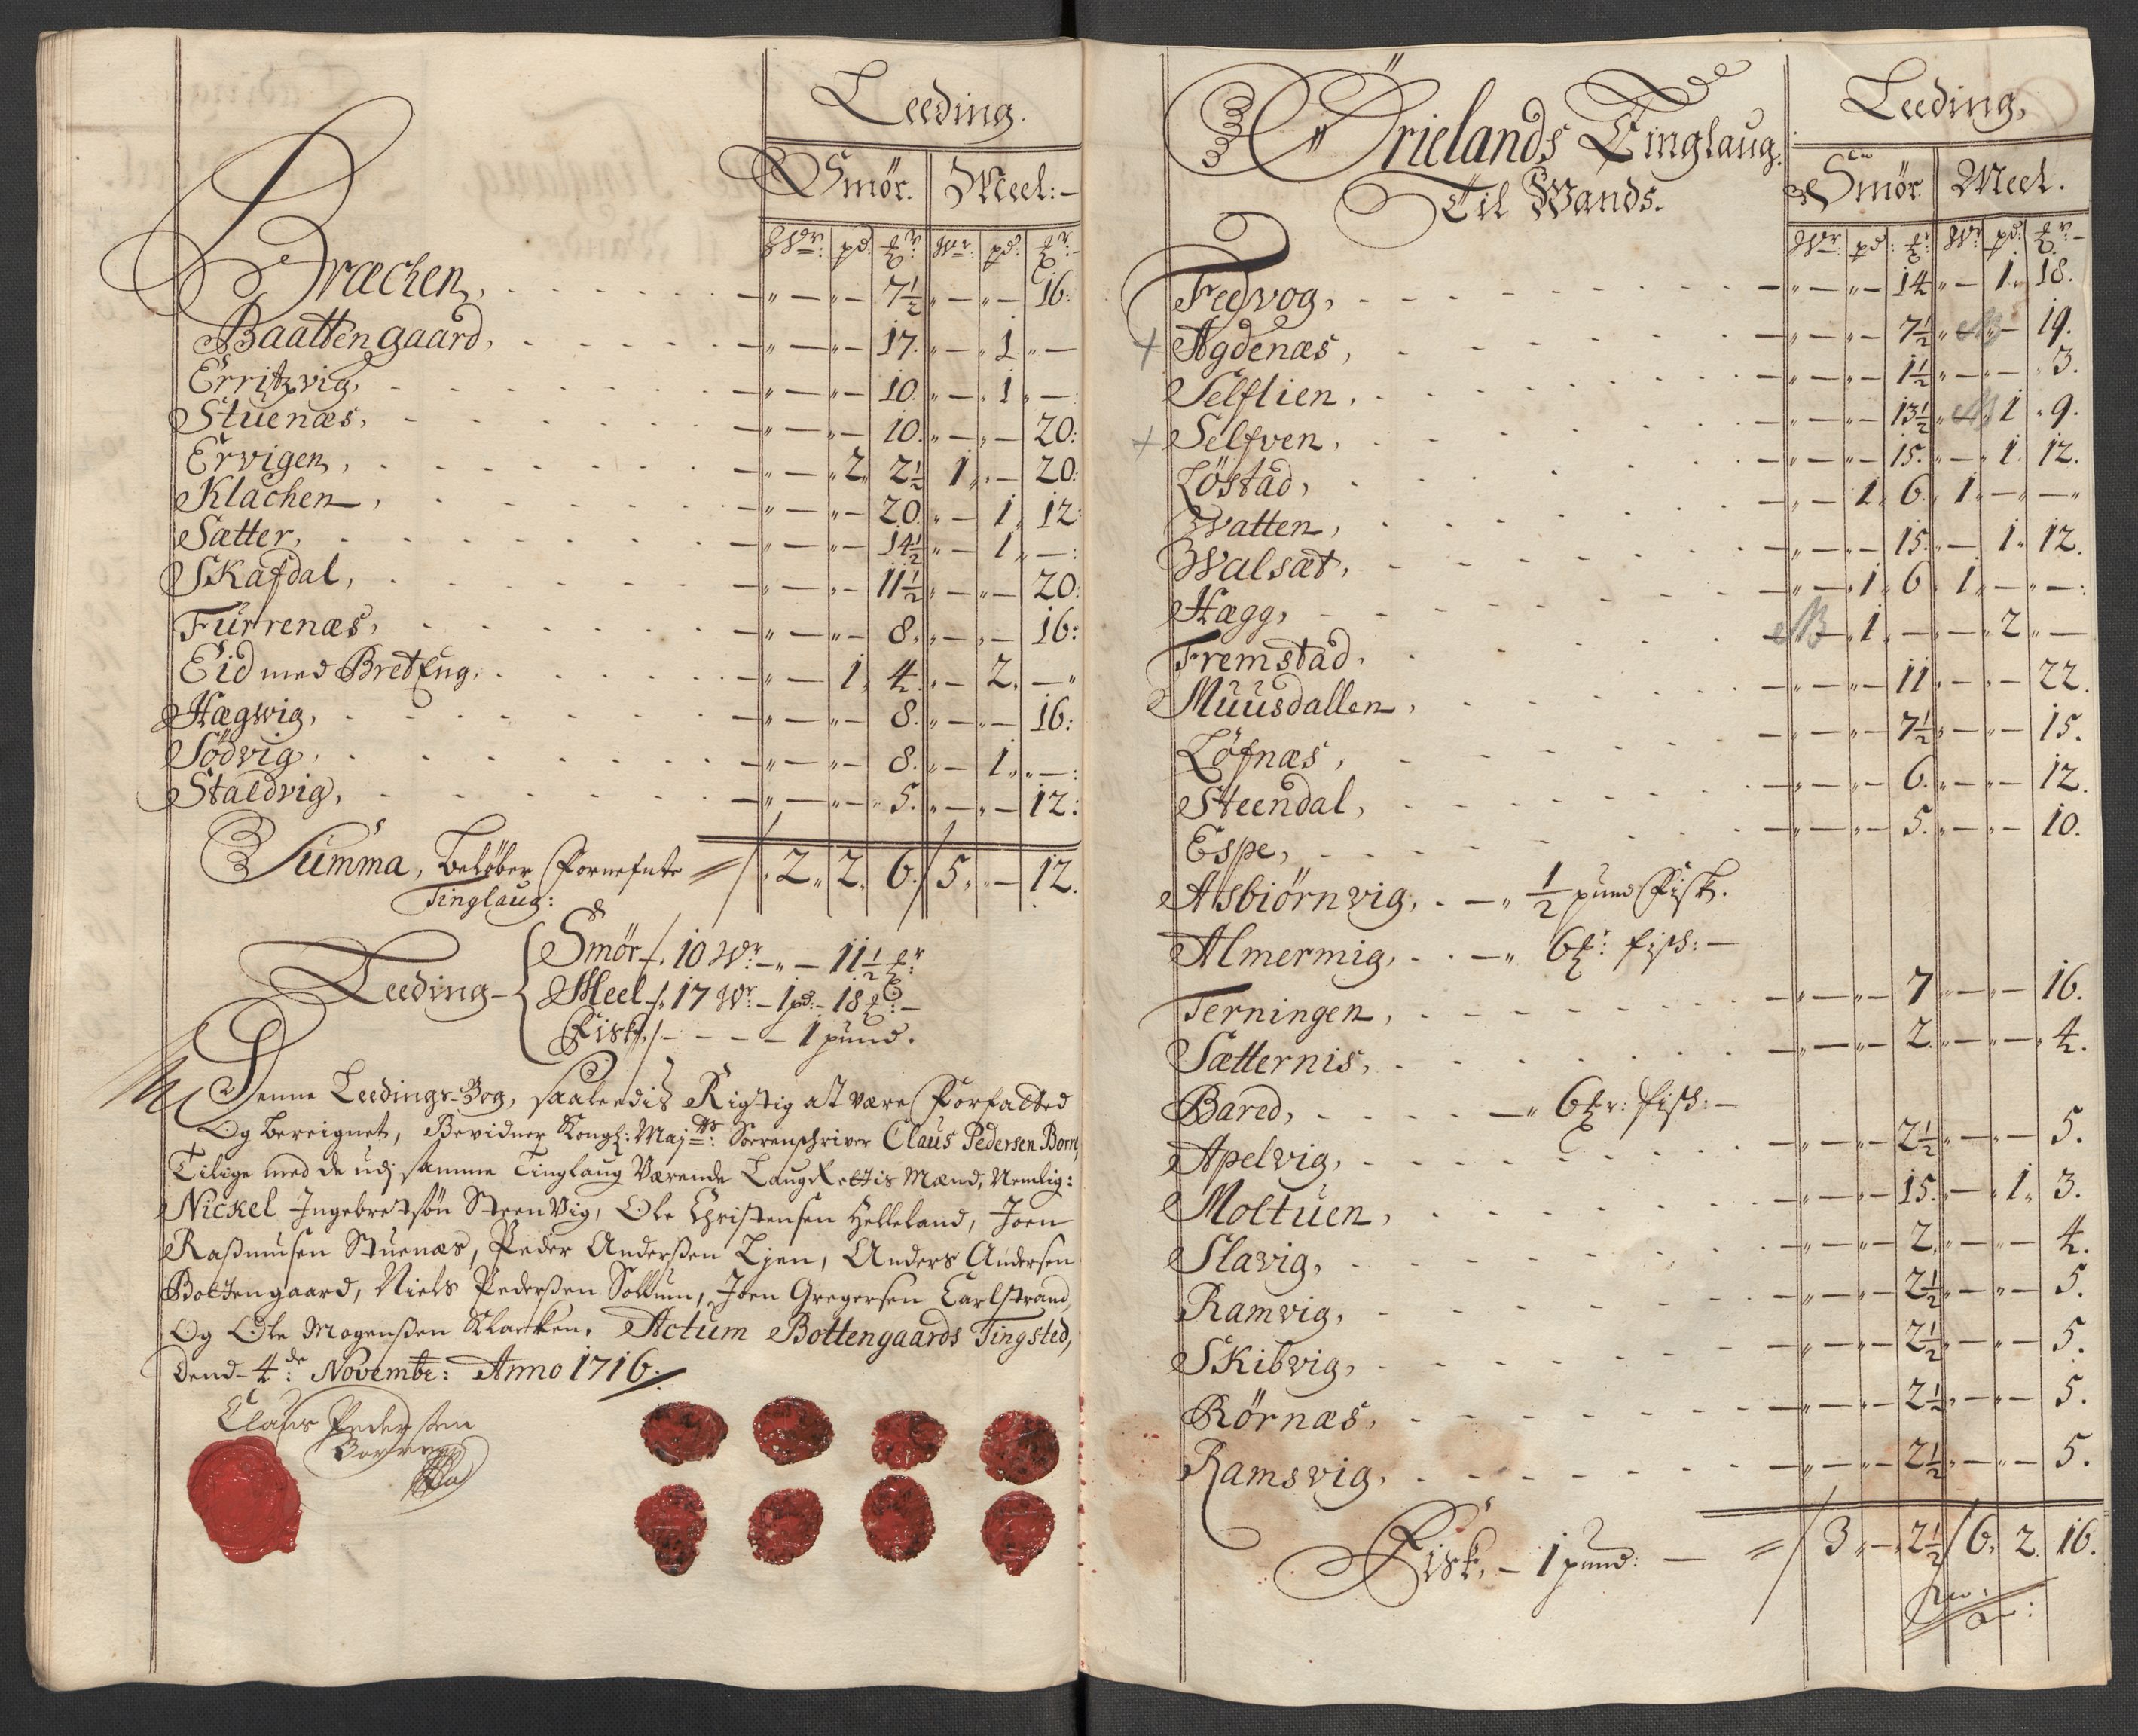 Leeding.
Smör. Meel:
Wr: pd: ℔r: Wr: pd: ℔r:
Bræchen, — „ — „ — 7½ „ — „ — 16:
Baattengaard, — „ — „ — 17. „ — „ 1 „ —
Erritzvig, — „ — „ — 10. „ — „ 1 „ —
Stuenæs, — „ — „ — 10. „ — „ — 20:
Ervigen, — „ — „ 2„ 2½ 1„ „ — 20:
Klachen, — „ — „ — 20. „ — 1„ 12
Sætter, — „ — „ — 14½ „ — 1„ —:
Skafdal, — „ — „ — 11½ „ — „ — 20:
Furrenæs, — „ — „ — 8. „ — „ — 16:
Eid med Bret Eng. — „ — 1„ 4. „ — 2. — „
Hægwig, — „ — „ — 8. „ — „ — 16:
Södvig, — „ — „ — 8. „ — 1„ „ —:
Staldvig, — „ — „ — 5. „ — „ — 12:
Summa, beløber Fornefnte // 2„ 2. 6. / 5„ „ — 12.
Tinglaug:
Leeding — Smör /. 10 Wr: — „ — 11½ ℔r:
Meel /. 17 Wr: — 1 pd: — 18 ℔:—
Fisk /. — — — — 1 pund.
Denne Leedings-Bog, saaledis Rigtig at være Forfatted
Og bereignet, Bevidner Kongl: Maj:tts Sorenschriver Claus Pedersen Born,
Tilige med de udj samme Tinglaug Værende Laug Rettis Mænd, Nemlig:
Nickel Ingebretsøn Steenvig, Ole Christensen Helleland, Joen
Rasmusen Stuenæs, Peder Anderssen Lyen, Anders Andersen
Bottengaard, Niels Pederssen Sollum, Joen Gregersen Carlstrand,
Og Ole Mogenssen Klacken. Actum Bottengaards Tingsted,
Dend 4de: Novembr: Anno 1716.
Claus Pedersen
Born
Örielands Tinglaug.
Til Wands.
Leeding,
Smör Meel.
Wr: pd: ℔r: Wr: pd: ℔r:
Fedvog, — „ — „ — 14 „ — 1„ 18.
+ Agdenæs, — „ — „ — 7½ „ — „ — 19.
Selflien, — „ — „ — 1½ „ — „ — 3.
+ Selfven, — „ — „ — 13½ „ — 1 „ 9.
Löstad, — „ — „ — 15. „ — „ 1. 12.
Watten, — „ — 1„ 6. 1„ — „ — „
Walsæt, — „ — „ — 15. „ — 1„ 12.
Hægg, — „ — „ 1„ 6. 1„ — „ —:
Fremstad. NB — „ 1„ — „ — „ 2 „ —
Muusdallen, — „ — „ — 11 „ — „ — 22.
Löfnæs, — „ — „ — 7½ „ — „ — 15.
Steendal, — „ — „ — 6. „ — „ — 12.
Espe, — „ — „ — 5. „ — „ — 10.
Asbiörnvig, . — „ ½ pund Fisk.
Almermig, . . — „ 6 ℔r: fisk: —
Terningen, — „ — „ — 7 „ — „ — 16.
Sætternis, — „ — „ — 2. „ — „ — 4.
Bared, — „ 6 ℔r: fisk: —
Apelvig, — „ — „ — 2½ „ — „ — 5.
Moltuen, — „ — „ — 15. „ — „ 1„ 3.
Slavig, — „ — „ — 2. „ — „ — 4.
Ramvig, — „ — „ — 2½ „ — „ — 5.
Skibvig, — „ — „ — 2½ „ — „ — 5.
Rörnæs, — „ — „ — 2½ „ — „ — 5.
Ramsvig, — „ — „ — 2½ „ — „ — 5.
Fisk, — 1 pund: — // 3 „ — 2½ / 6„ 2. 16.